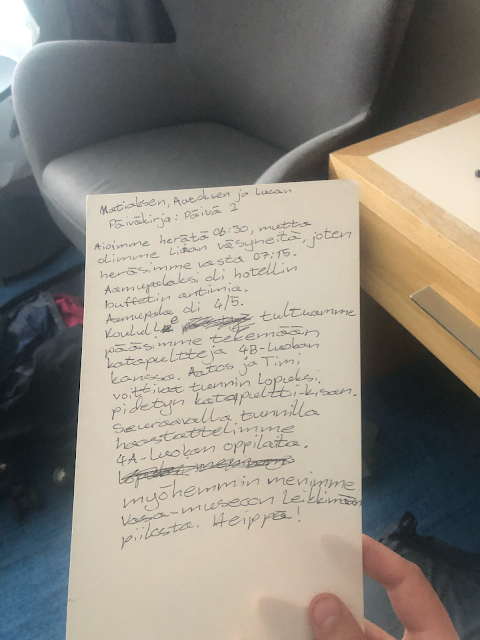 Matiaksen, Aatoksen ja Lucan
Päiväkirja: Päivä 2
Aioimme herätä 06:30, mutta
olimme liian väsyneitä, joten
heräsimme vasta 07:15.
Aamupalaksi oli hotellin
buffetin antimia.
Aamupala oli 4/5.
Koululle tultuamme
pääsimme tekemään
katapultteja 4B-luokan
kanssa. Aatos ja Timi
voittivat tunnin lopuksi
pidetyn katapultti-kisan.
Seuraavalla tunnilla
haastattelimme
4A-luokan oppilaita.
myöhemmin menimme
Vasa-museoon leikkimään
piilosta. Heippa!